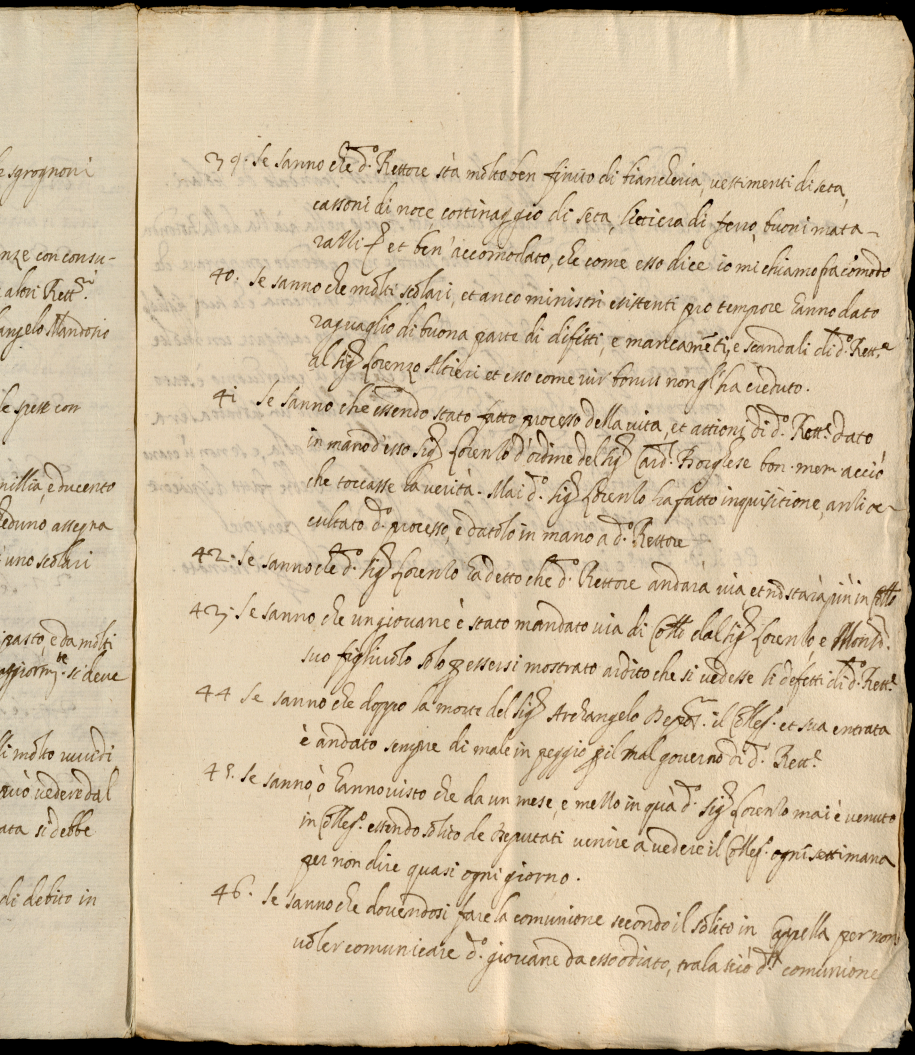 e sgrognoni
nze con consu-
altri Rett.ri
angelo Mantosio
le spese con
millia, e ducento
eduno assegna
uno scolari
pasto, e da molti
si deve
li molto vuvidi
può vedere dal
ata si debbe
di debito in
39. Se sanno che d.o Rettore stà molto ben finito di biancheria, vestimenti di seta,
cassoni di noce, cortinaggio di seta, littiera di ferro, buoni mata-
razzi p et ben' accomodato, che come esso dice io mi chiamo fra cómodo
40. Se sanno che molti scolari, et anco ministri esistenti pro tempore hanno dato
raguaglio di buona parte di difetti, e mancaméti, e scandali di d.o Rett.e
al Sig.r Lorenzo Altieri et esso come vir bonus non gl'ha creduto.
41 Se sanno che essendo stato fatto processo della vita, et attioni di d.o Rett.e dato
in mano d'esso Sig.r Lorenzo d'ordine del Sig.r Card. Borghese bon. mem. acciò
che toccasse la verità. Mai d.o Sig.r Lorenzo ha fatto inquisitione, anzi oc-
cultato d.o processo, e datolo in mano a d.o Rettore
42. Se sanno che d.o Sig.r Lorenzo ha detto che d.o Rettore andarà via et nó starà più in Coll.o
43. Se sanno che un giovane è stato mandato via di Coll.o dal Sig.r Lorenzo e Mons.r
suo figliuolo solo p essersi mostrato ardito che si vedesse li defetti di d.o Rett.e
44 Se sanno che doppo la morte del Sig.r Archangelo Dep.or il Colleg.o et sua entrata
è andato sempre di male in peggio p il mal governo di d.o Rett.e
45. Se sanno, ò hanno visto che da un mese, e mezzo in quà d.o Sig.r Lorenzo mai è venuto
in Colleg.o essendo solito de Deputati venire a vedere il Colleg.o ogni settimana
per non dire quasi ogni giorno.
46. Se sanno che dovendosi fare la comunione secondo il solito in Cappella per non
voler comunicare d.o giovane da esso odiato, tralasciò d.a comunione